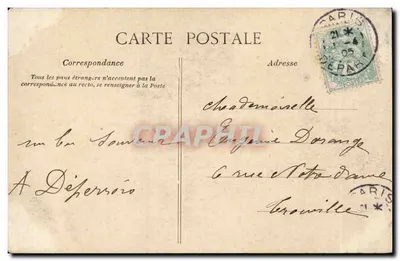 CARTE POSTALE
Correspondance
Tous les pays étrangers n'acceptent pas la
correspondance au recto, se renseigner à la Poste
un bon souvenir
A Déperrois
Adresse
Mademoiselle
Eugénie Dorange
6 rue Notre dame
Trouville
PARIS
21 *
DEPART
CPARHTI
PARIS